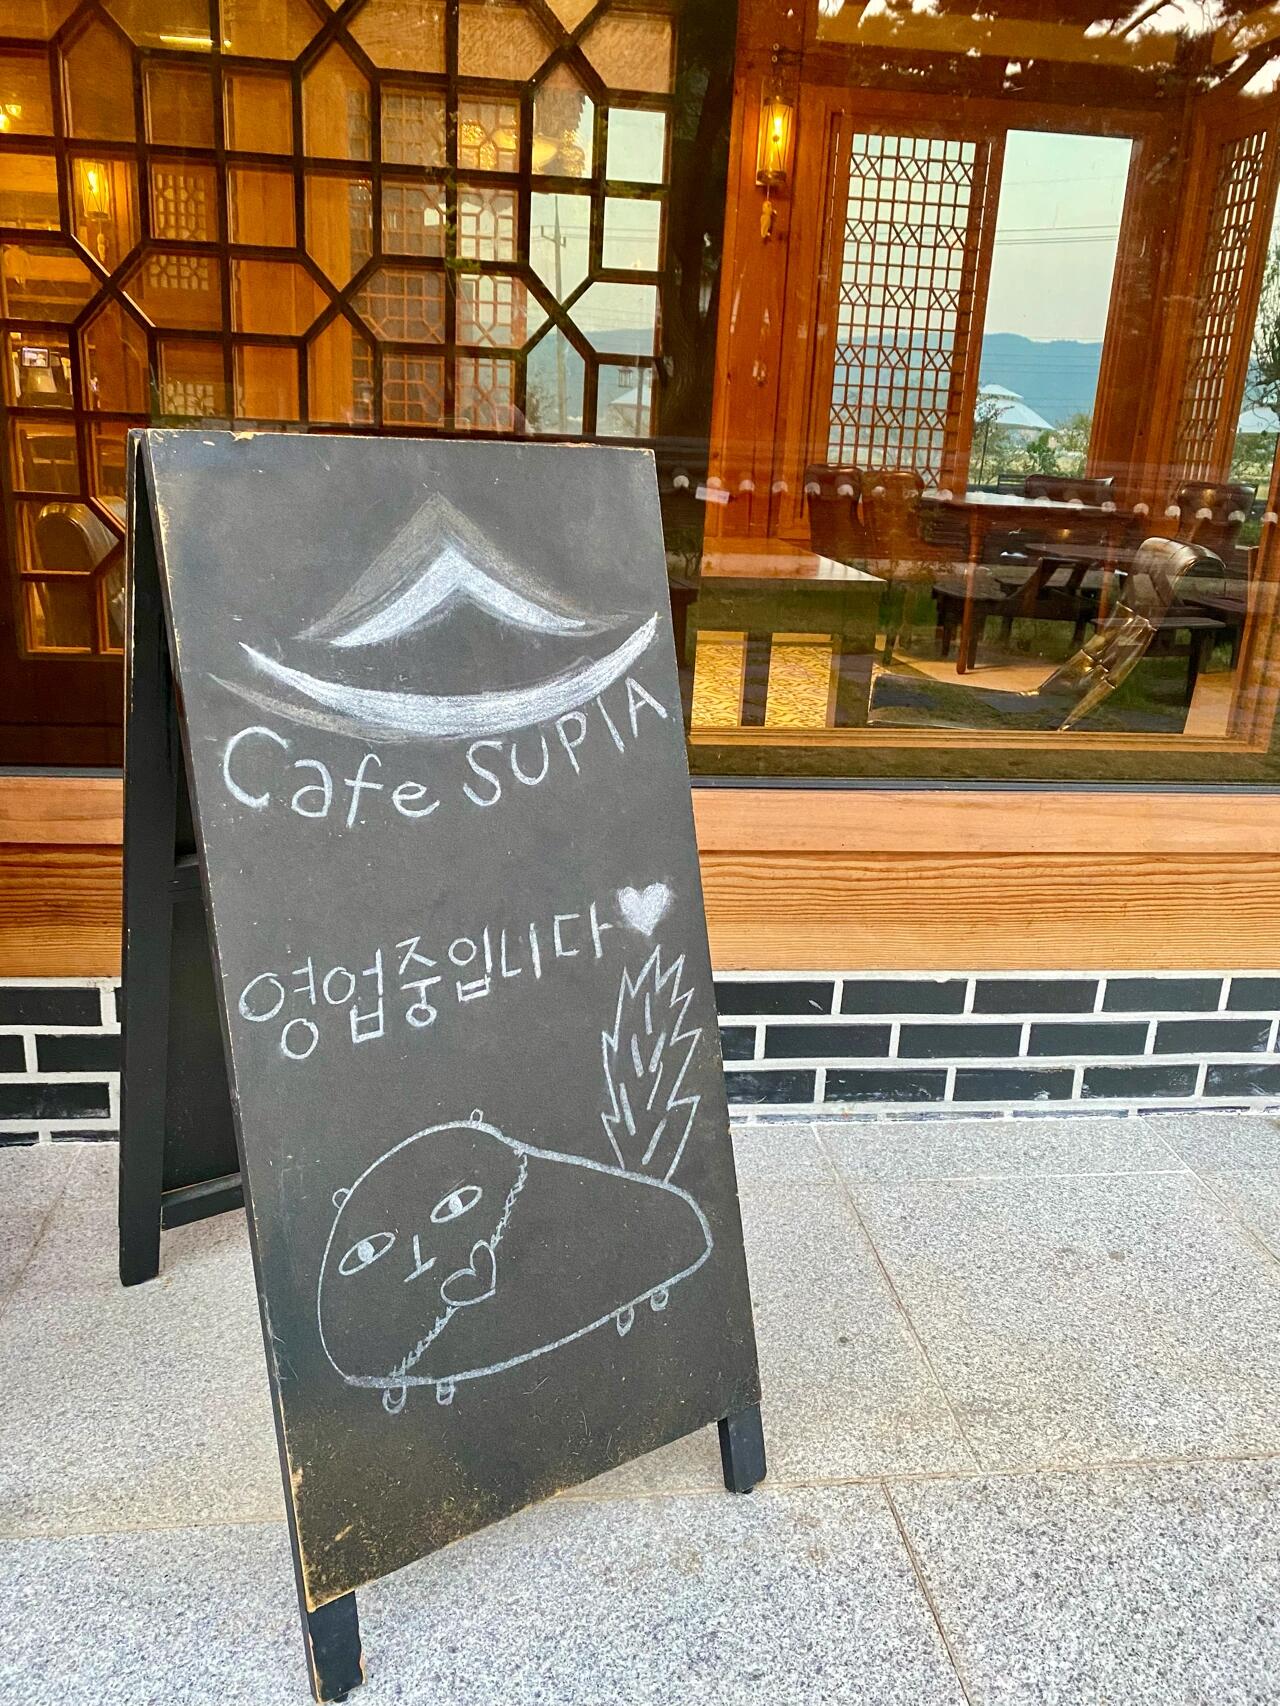 Cafe SUPIA
영업중입니다